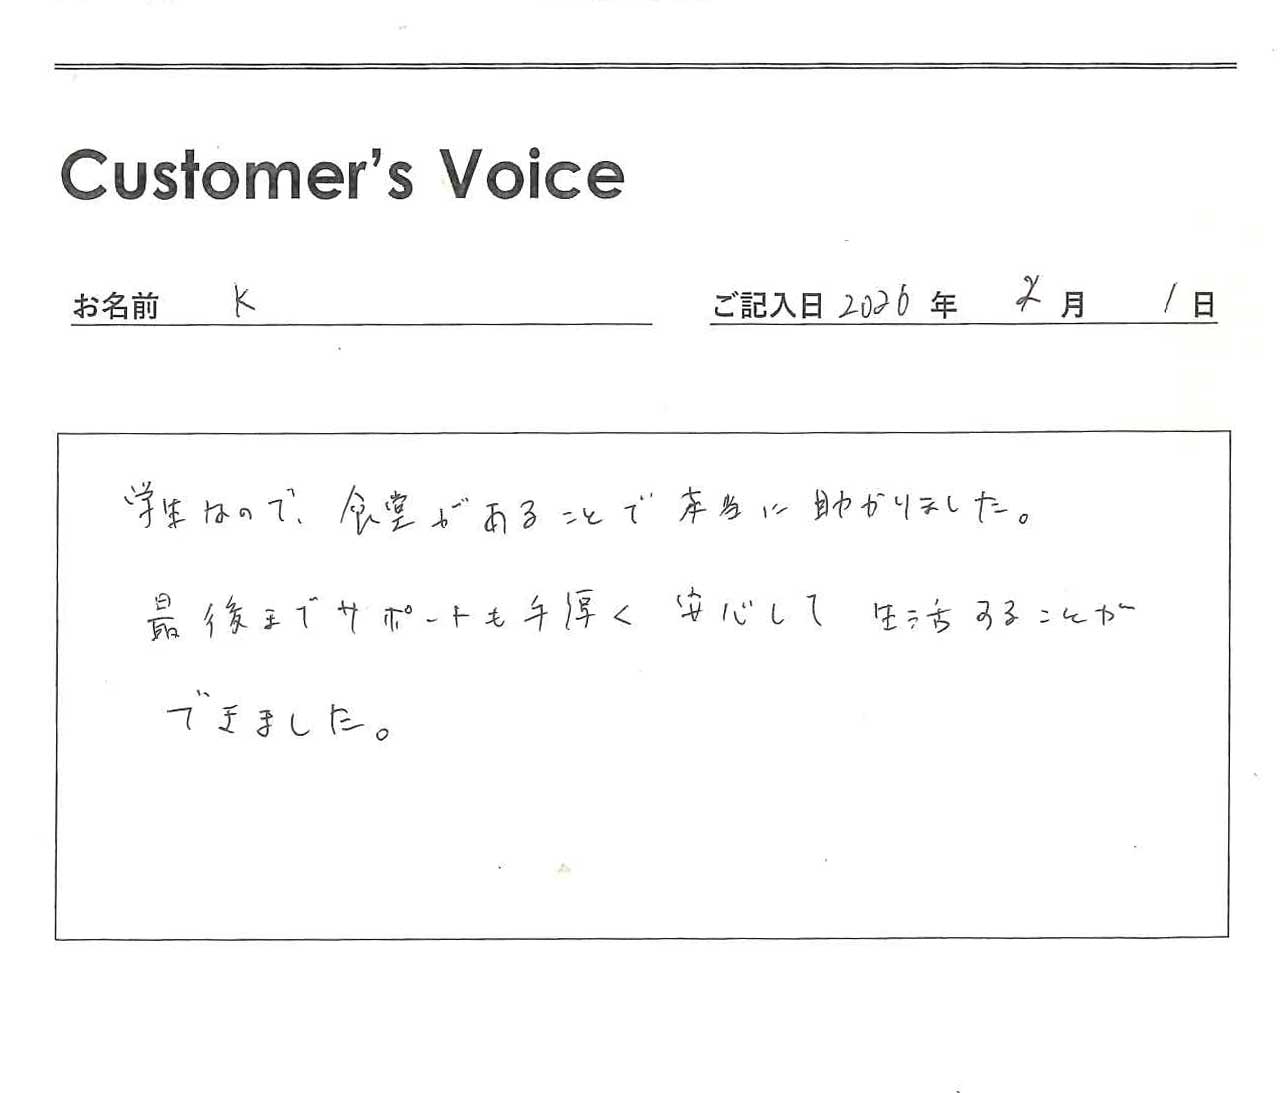 Customer's Voice
お名前 K
ご記入日 2026 年 2 月 1 日
学生なので、食堂があることで本当に助かりました。
最後までサポートも手厚く安心して生活することが
できました。